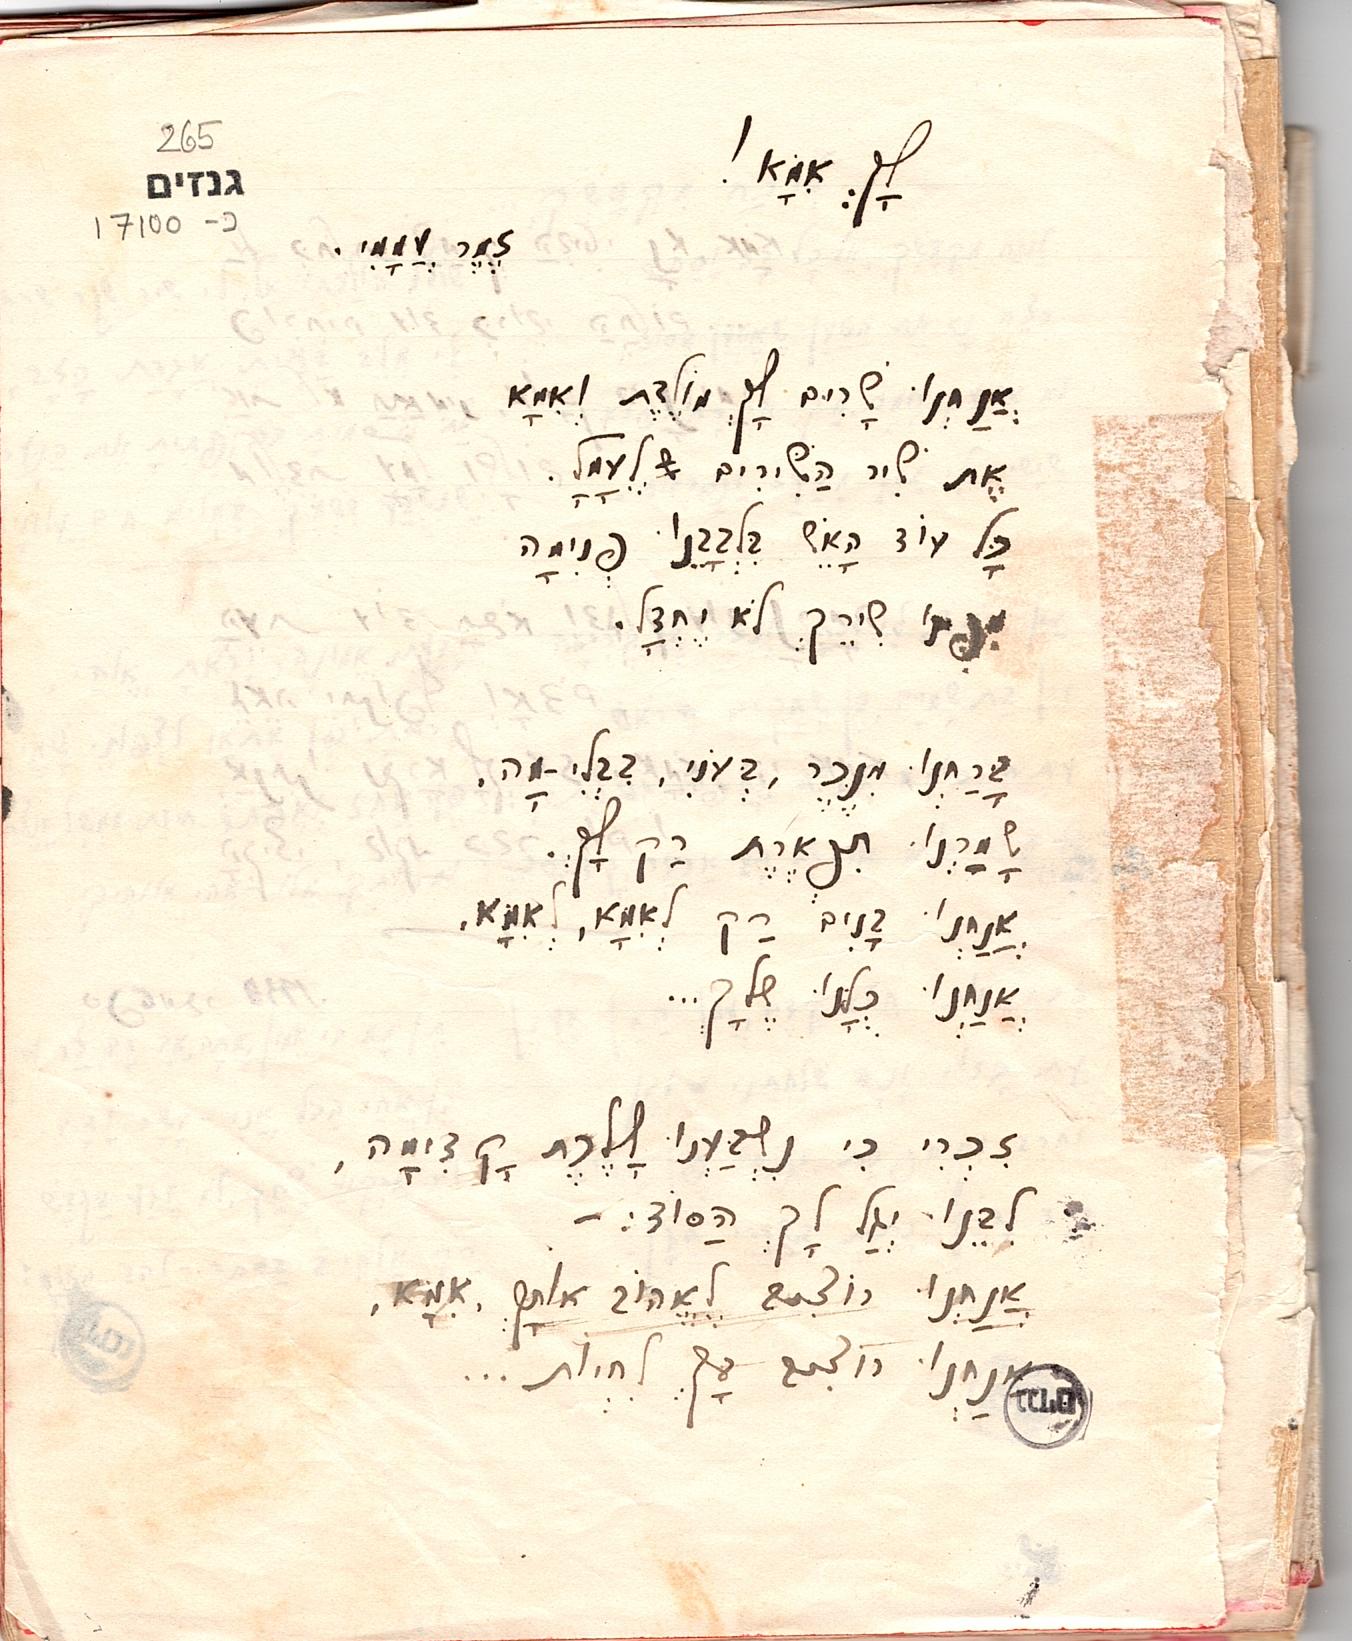 265
גנזים
כ- 17100
לָךְ, אִמָּא!
זֶמֶר עֲמָמִי.
אֲנַחְנוּ שָׁרִים לָךְ מוֹלֶדֶת וְאִמָּא
אֶת שִׁיר הַשִּׁירִים לֶעָמָל.
כָּל עוֹד הָאֵשׁ בִּלְבָבֵנוּ פְּנִימָה
שִׁירֵךְ לֹא יֶחְדָּל.
בָּרַחְנוּ מִנֵּכָר, בְּעֹנִי, בִּבְלִי-מָה,
שָׁמַרְנוּ תִּפְאֶרֶת רַק לָךְ.
אֲנַחְנוּ בָּנִים רַק לְאִמָּא, לְאִמָּא,
אֲנַחְנוּ כֻּלָּנוּ שֶׁלָּךְ...
זִכְרִי כִּי נִשְׁבַּעְנוּ לָלֶכֶת קָדִימָה,
לִבֵּנוּ יְגַל לָךְ הַסּוֹד: –
אֲנַחְנוּ רוֹצִים לֶאֱהוֹב אוֹתָךְ, אִמָּא,
אֲנַחְנוּ רוֹצִים לִחְיוֹת...
גנזים